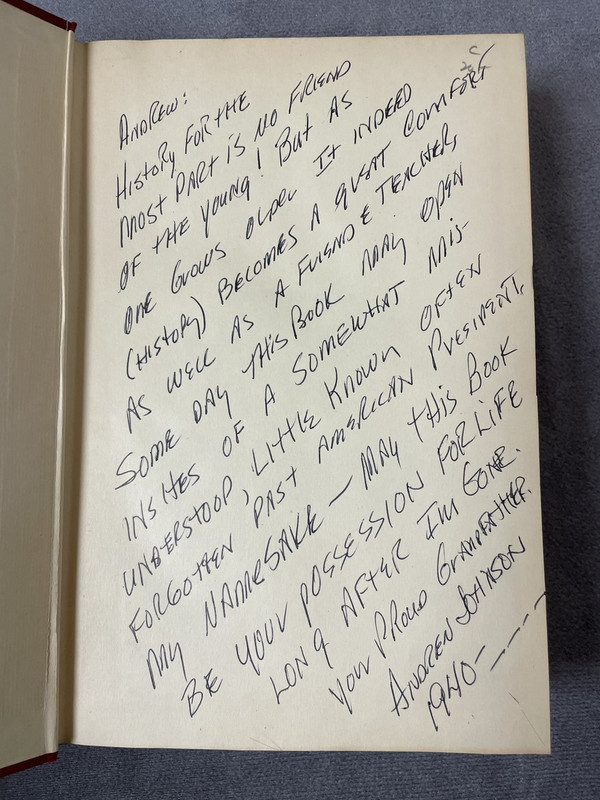 ANDREW:
HISTORY FOR THE
MOST PART IS NO FRIEND
OF THE YOUNG! BUT AS
ONE GROWS OLDER IT INDEED
(HISTORY) BECOMES A GREAT COMFORT
AS WELL AS A FRIEND & TEACHER,
SOME DAY THIS BOOK MAY OPEN
INSITES OF A SOMEWHAT MIS-
UNDERSTOOD, LITTLE KNOWN OFTEN
FORGOTTEN PAST AMERICAN PRESIDENT,
MY NAMESAKE — MAY THIS BOOK
BE YOUR POSSESSION FOR LIFE
LONG AFTER I'M GONE.
YOUR PROUD GRANDFATHER.
ANDREW JOHNSON
1940-----